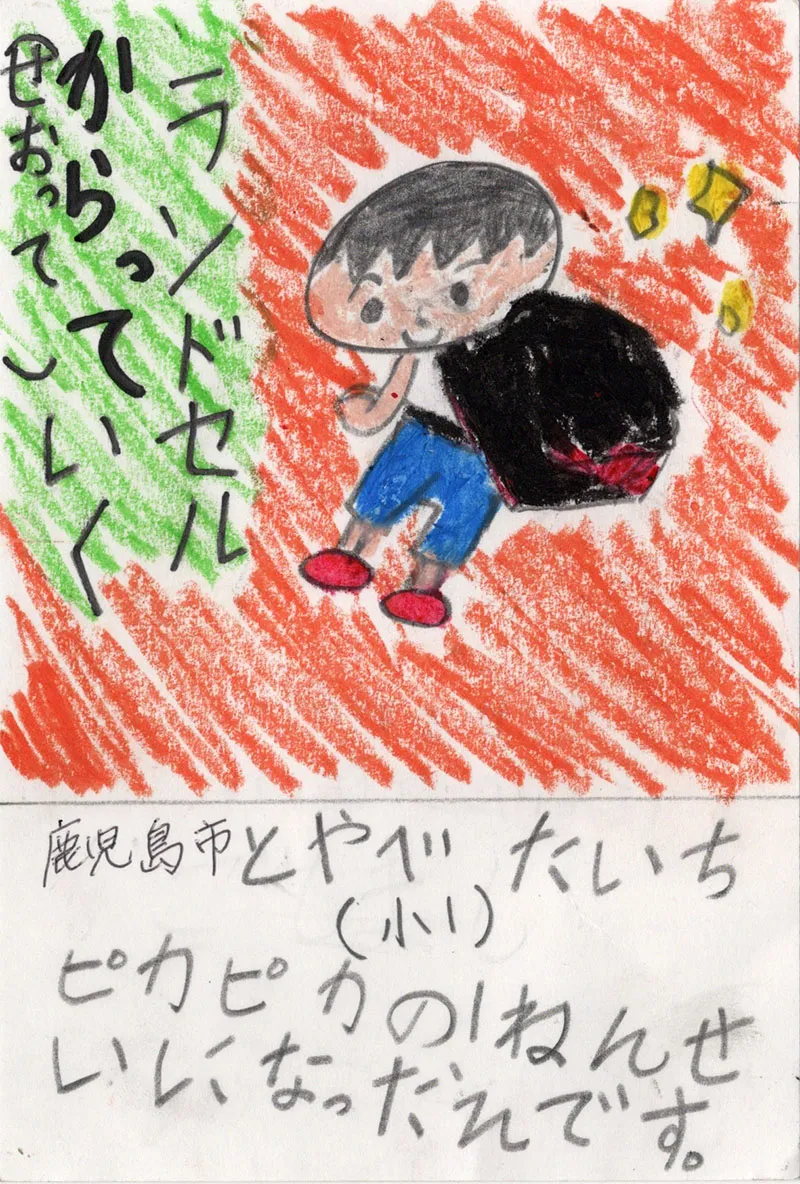 ランドセル
からっていく
(せおって)
鹿児島市とやべ たいち
(小1)
ピカピカの1ねんせ
いになったんです。